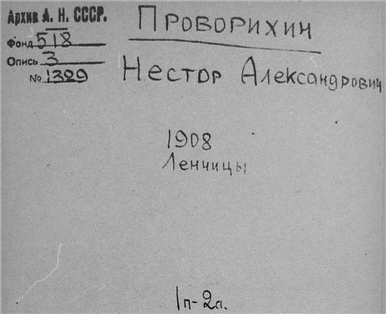 Архив А. Н. СССР.
Фонд 518
Опись 3
№ 1329
Проворихин
Нестор Александрович
1908
Ленчицы
1п-2л.